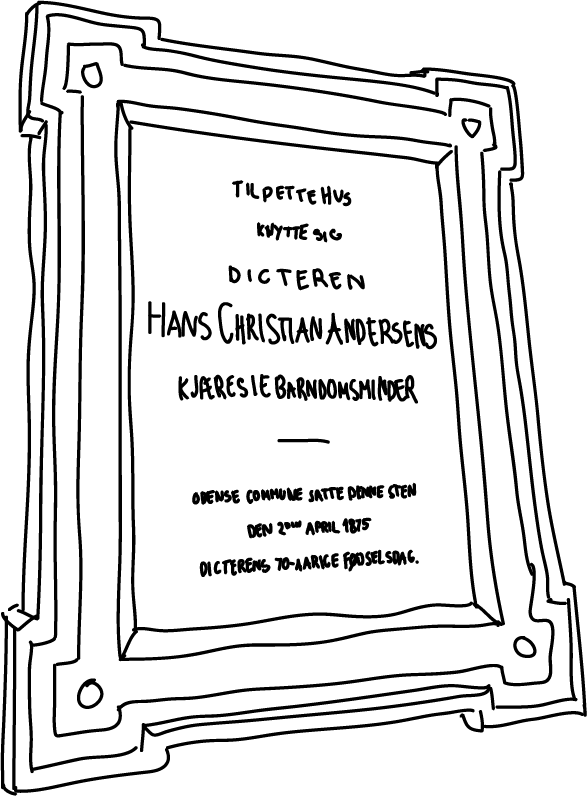 TIL DETTE HUS
KNYTTE SIG
DICTEREN
HANS CHRISTIAN ANDERSENS
KJÆRESTE BARNDOMSMINDER
ODENSE COMMUNE SATTE DENNE STEN
DEN 2DEN APRIL 1875
DICTERENS 70-AARIGE FØDSELSDAG.